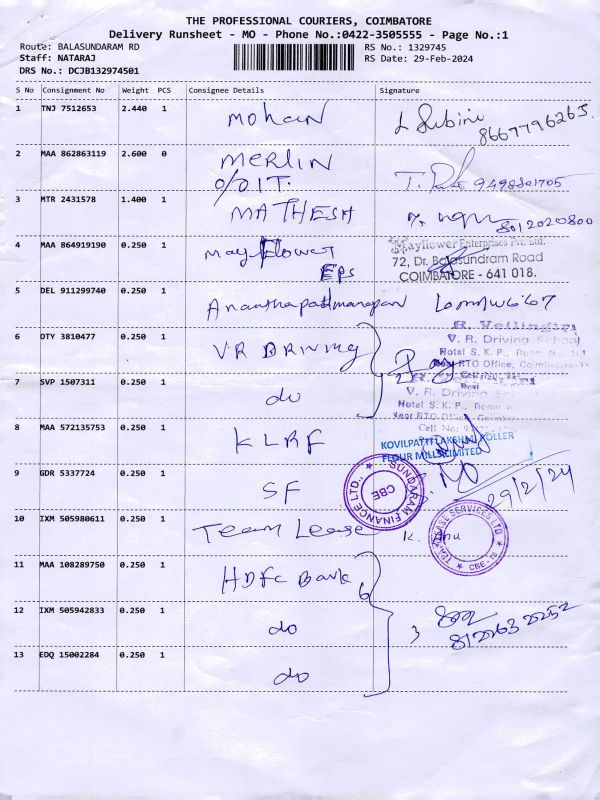 THE PROFESSIONAL COURIERS, COIMBATORE
Delivery Runsheet - MO - Phone No.:0422-3505555 - Page No.:1
Route: BALASUNDARAM RD RS No.: 1329745
Staff: NATARAJ RS Date: 29-Feb-2024
DRS No.: DCJB132974501
S No Consignment No Weight PCS Consignee Details Signature
1 TNJ 7512653 2.440 1 Mohan 8667796265
2 MAA 862863119 2.600 0 MERLIN
O/O IT.
3 MTR 2431578 1.400 1 MATHESH 8012020800
4 MAA 864919190 0.250 1 Mayflower
EPS
Mayflower Enterprises Pvt. Ltd.
72, Dr. Balasundram Road
COIMBATORE - 641 018.
5 DEL 911299740 0.250 1 Ananthapadmanapan
6 DTY 3810477 0.250 1 VR DRIVING
R. Vellingiri
V. R. Driving School
Hotel S. K. P., Room No.
Near RTO Office, Coimbatore
7 SVP 1507311 0.250 1 do
V. R. Driving
Hotel S. K. P., Room
Near RTO Office,
Cell No:
8 MAA 572135753 0.250 1 KLRF
KOVILPATTI LAKSHMI ROLLER
FLOUR MILLS LIMITED
9 GDR 5337724 0.250 1 SF
SUNDARAM FINANCE LTD.,
CBE
29/2/24
10 IXM 505980611 0.250 1 Team Lease K.
TEAM LEASE SERVICES LTD
CBE-18
11 MAA 108289750 0.250 1 HDFC Bank
12 IXM 505942833 0.250 1 do
13 EDQ 15002284 0.250 1 do